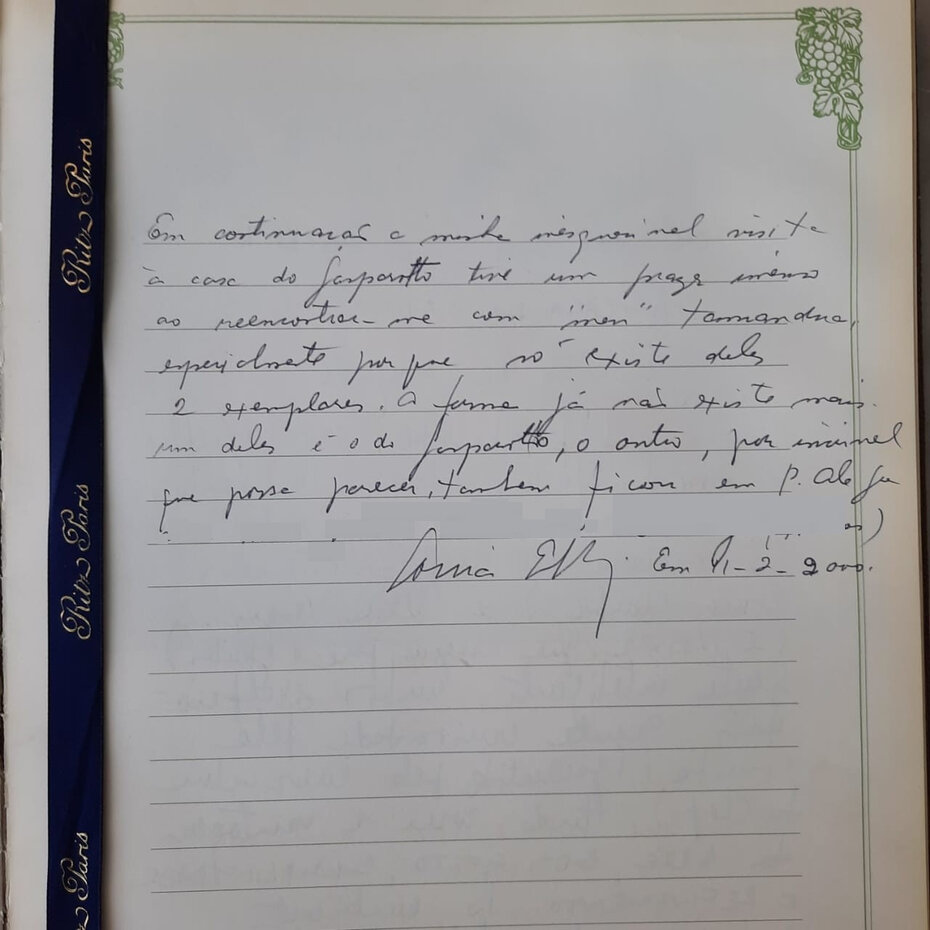 Ritz Paris
Ritz Paris
Ritz Paris
Em continuação a minha inesquecível visita
à casa do Gasparotto tive um prazer imenso
ao reencontrar-me com "meu" tamandua,
especialmente porque só existe deles
2 exemplares. A forma já não existe mais.
um deles é o do Gasparotto, o outro, por incrível
que possa parecer, tambem ficou em P. Alegre
Sonia Em 2-2000.